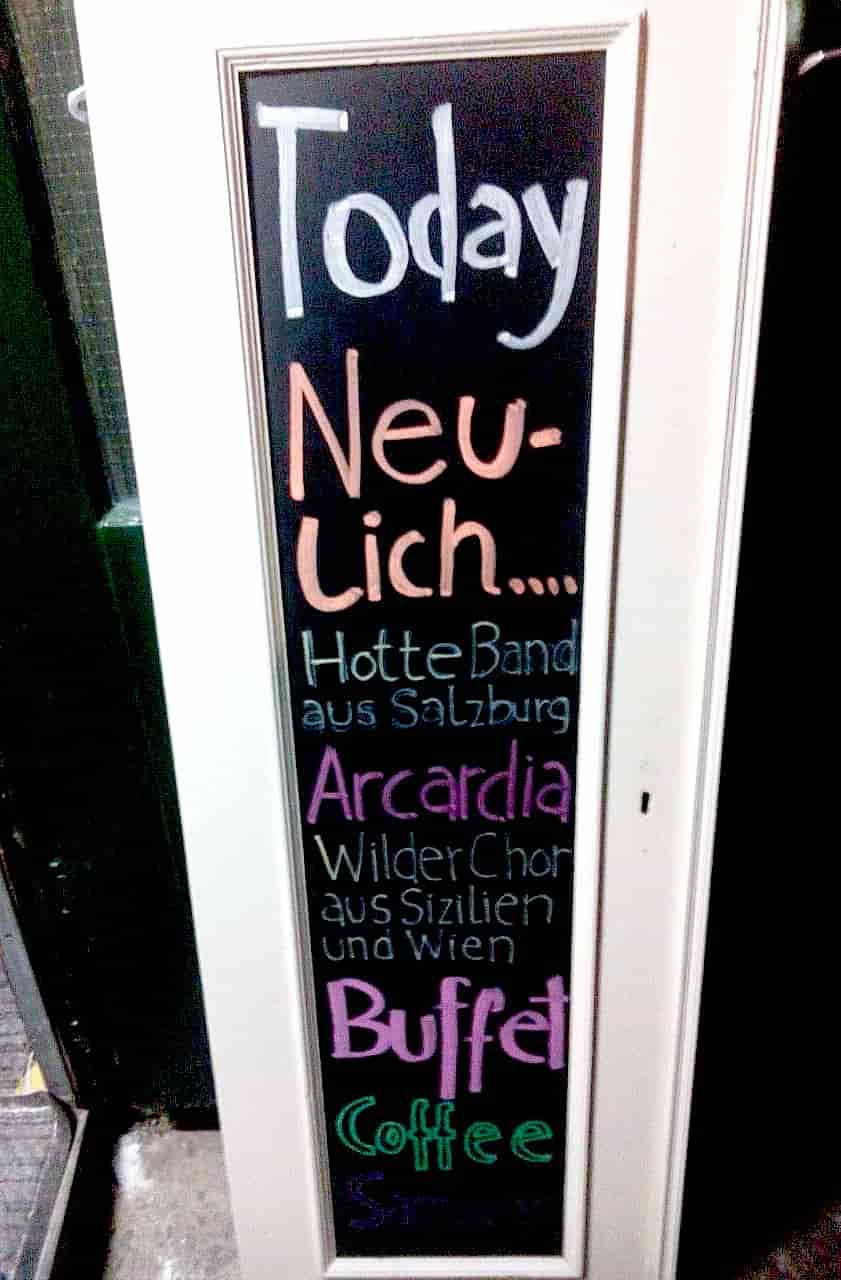 Today
Neu-
Lich....
Hotte Band
aus Salzburg
Arcardia
Wilder Chor
aus Sizilien
und Wien
Buffet
Coffee